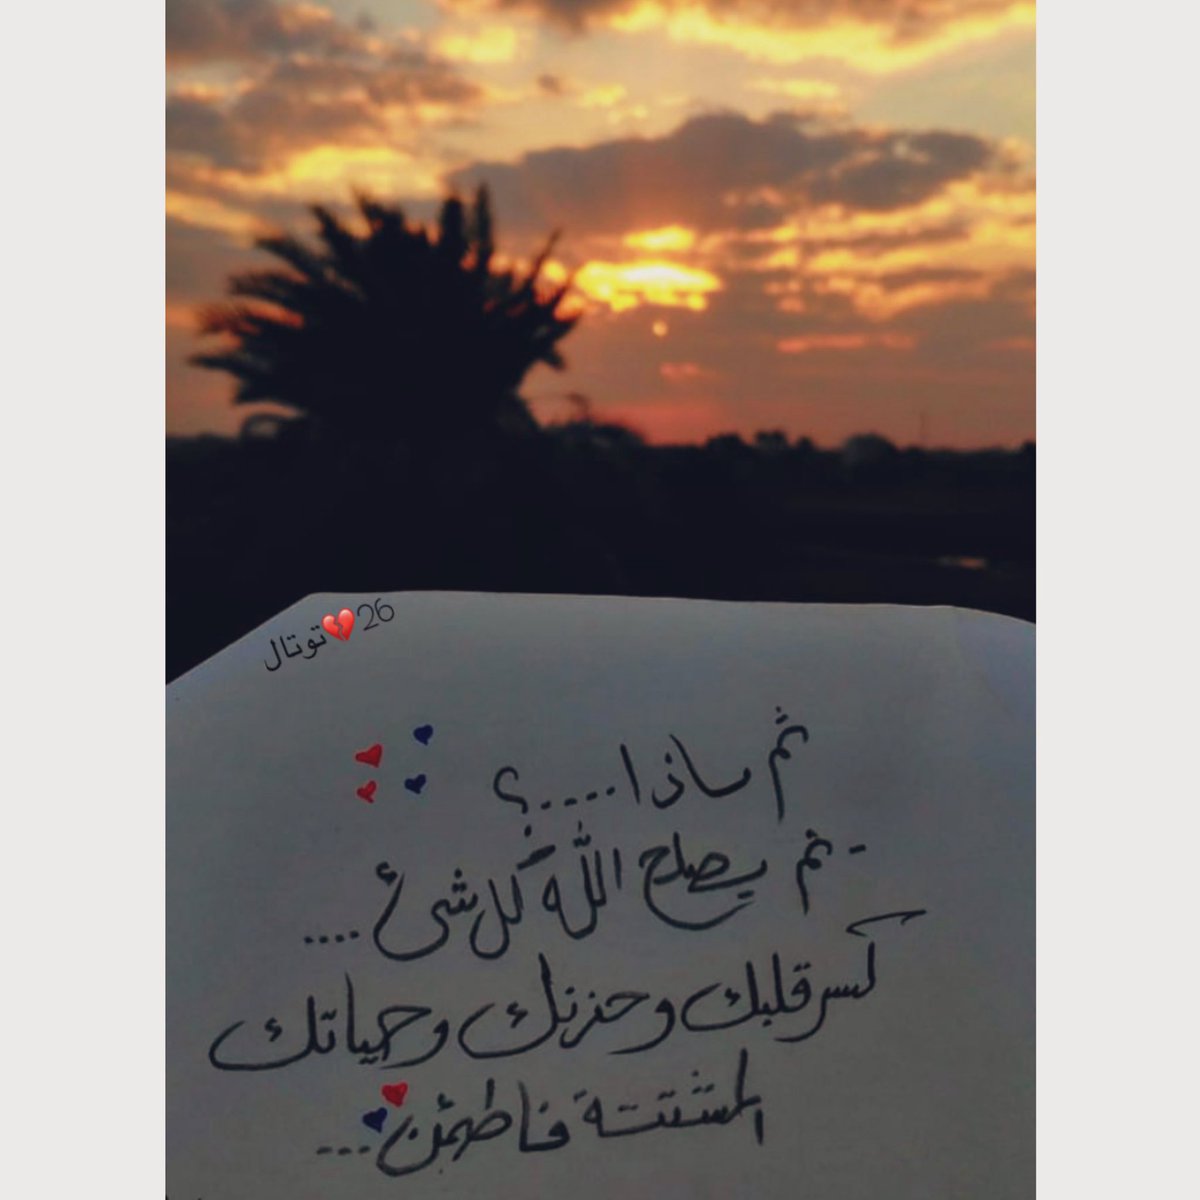 توتال💔26
ثم ماذا....؟
- ثم يصلح الله كل شئ ....
كسر قلبك وحزنك وحياتك
المشتتة فاطمئن...